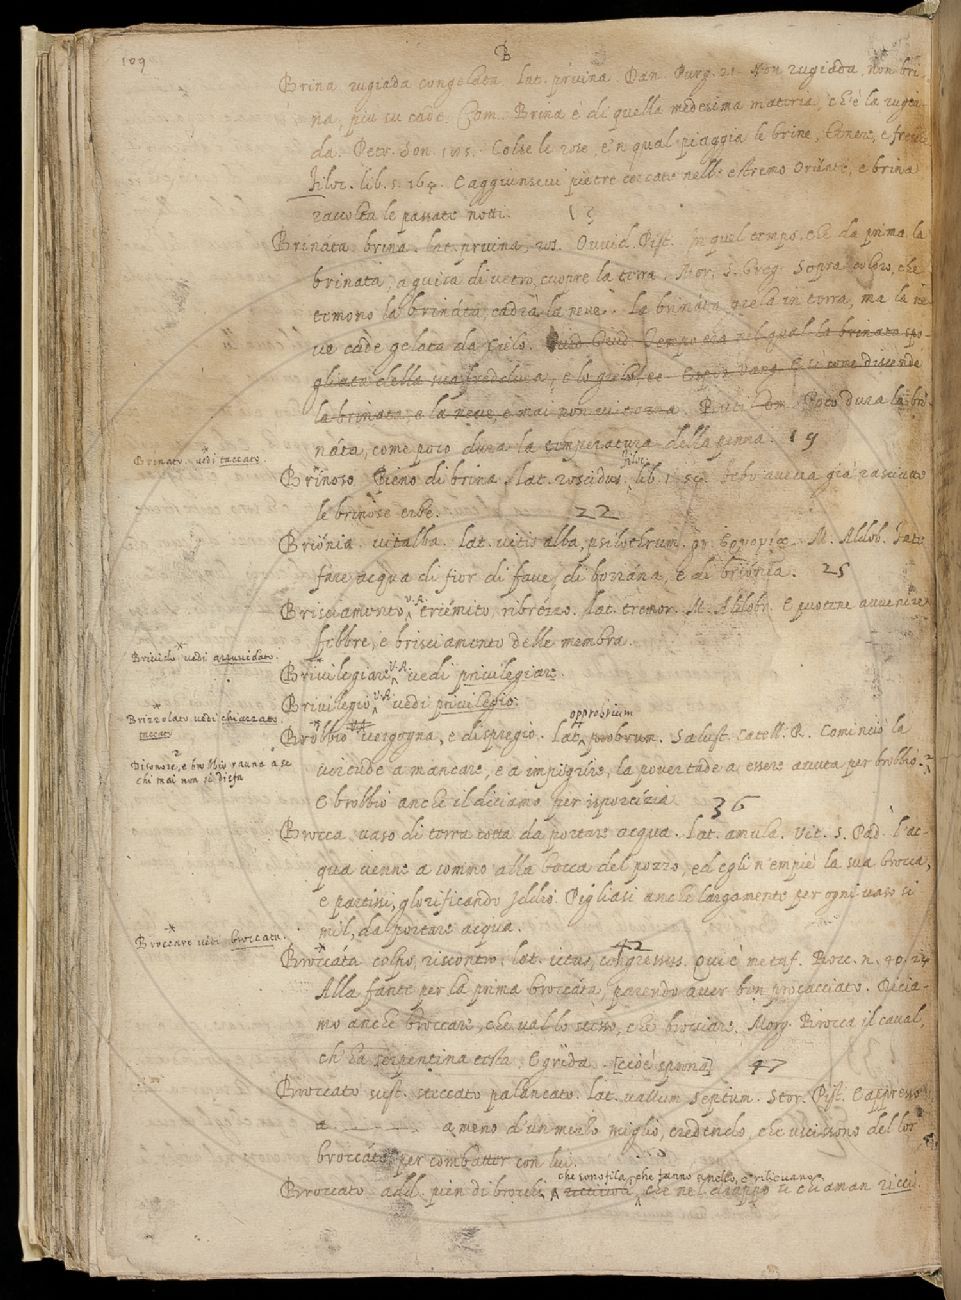 109
B
Brina rugiada congelata. Lat. pruina. Dan. Purg. 21. Non rugiada, non bri-
na, più su cade. Com. Brina è di quella medesima materia, ch'è la rugia-
da. Petr. Son. Colse le rose, e'n qual piaggia le brine, tenere, e fresche
Filoc. lib. 5. E aggiunsevi pietre cercate nell'estremo Oriente, e brina
raccolta le passate notti.
Brináta. brina. Lat. pruina, ros. Ovvid. Pist. In quel tempo, che da prima la
brinata, a guisa di vetro, cuopre la terra. Mor. S. Greg. Sopra coloro, che
temono la brináta, cadrà la neve. La brináta gela in terra, ma la ne-
ve cade gelata da Cielo.
la brinata, e la neve, e mai non vi torna. Poco dura la bri-
náta, come poco dura la temperatura della penna. 19
Brinato. vedi taccato.
Brinoso Pieno di brina. Lat. roscidus. Filoc. lib. Febo aveva già rasciutte
le brinose erbe. 22
Briónia. vitalba. Lat. vitis alba, psilothrum. M. Aldob. Fate
fare acqua di fior di fave, di borrána, e di briónia. 25
Brisciamento V.A. triémito, ribrézzo. Lat. tremor. M. Aldobr. E puotene avvenire
febbre, e brisciamento delle membra.
Brivido vedi
Brivilegiare V.A. vedi privilegiare.
Brivilegio V.A. vedi privilegio.
Brizzolato vedi chiazzato
taccato
Bróbbio vergogna, e dispregio. Lat. opprobrium probrum. Salust. Catell. R. Cominciò la
Disonore, e brobbio rauna a se
chi mai non si disfa
virtude a mancare, e a impigrire, la povertade a essere avuta per brobbio.
E brobbio anche il diciamo per isporcizia 36
Brocca vaso di terra cotta da portare acqua. Lat. amula. Vit. S. Pad. l'ac-
qua venne a sommo alla bocca del pozzo, ed egli n'empiè la sua brocca,
e partissi, glorificando Iddio. Pigliasi anche largamente per ogni vaso si-
mil, da portare acqua.
Broccare vedi broccata.
42
Broccáta colpo, riscontro. Lat. ictus, congressus. Qui è metaf. Bocc. n. 40. 24
Alla fante per la prima broccáta, parendo aver ben procacciato. Dicia-
mo anche broccare, che val lo stesso, che brocciare. Morg. Brocca il caval,
ch'ha serpentina testa. E grida. [cioè sprona] 47
Broccato sust. steccato palancato. Lat. vallum septum. Stor. Pist. E appresso
a ——— a meno d'un mezzo miglio, credendo, che uscissono del lor
broccáto per combatter con lui.
Broccato add. pien di brocchi, che sono fila, che fanno anello, e rilievano, che nel drappo si chiaman ricci.